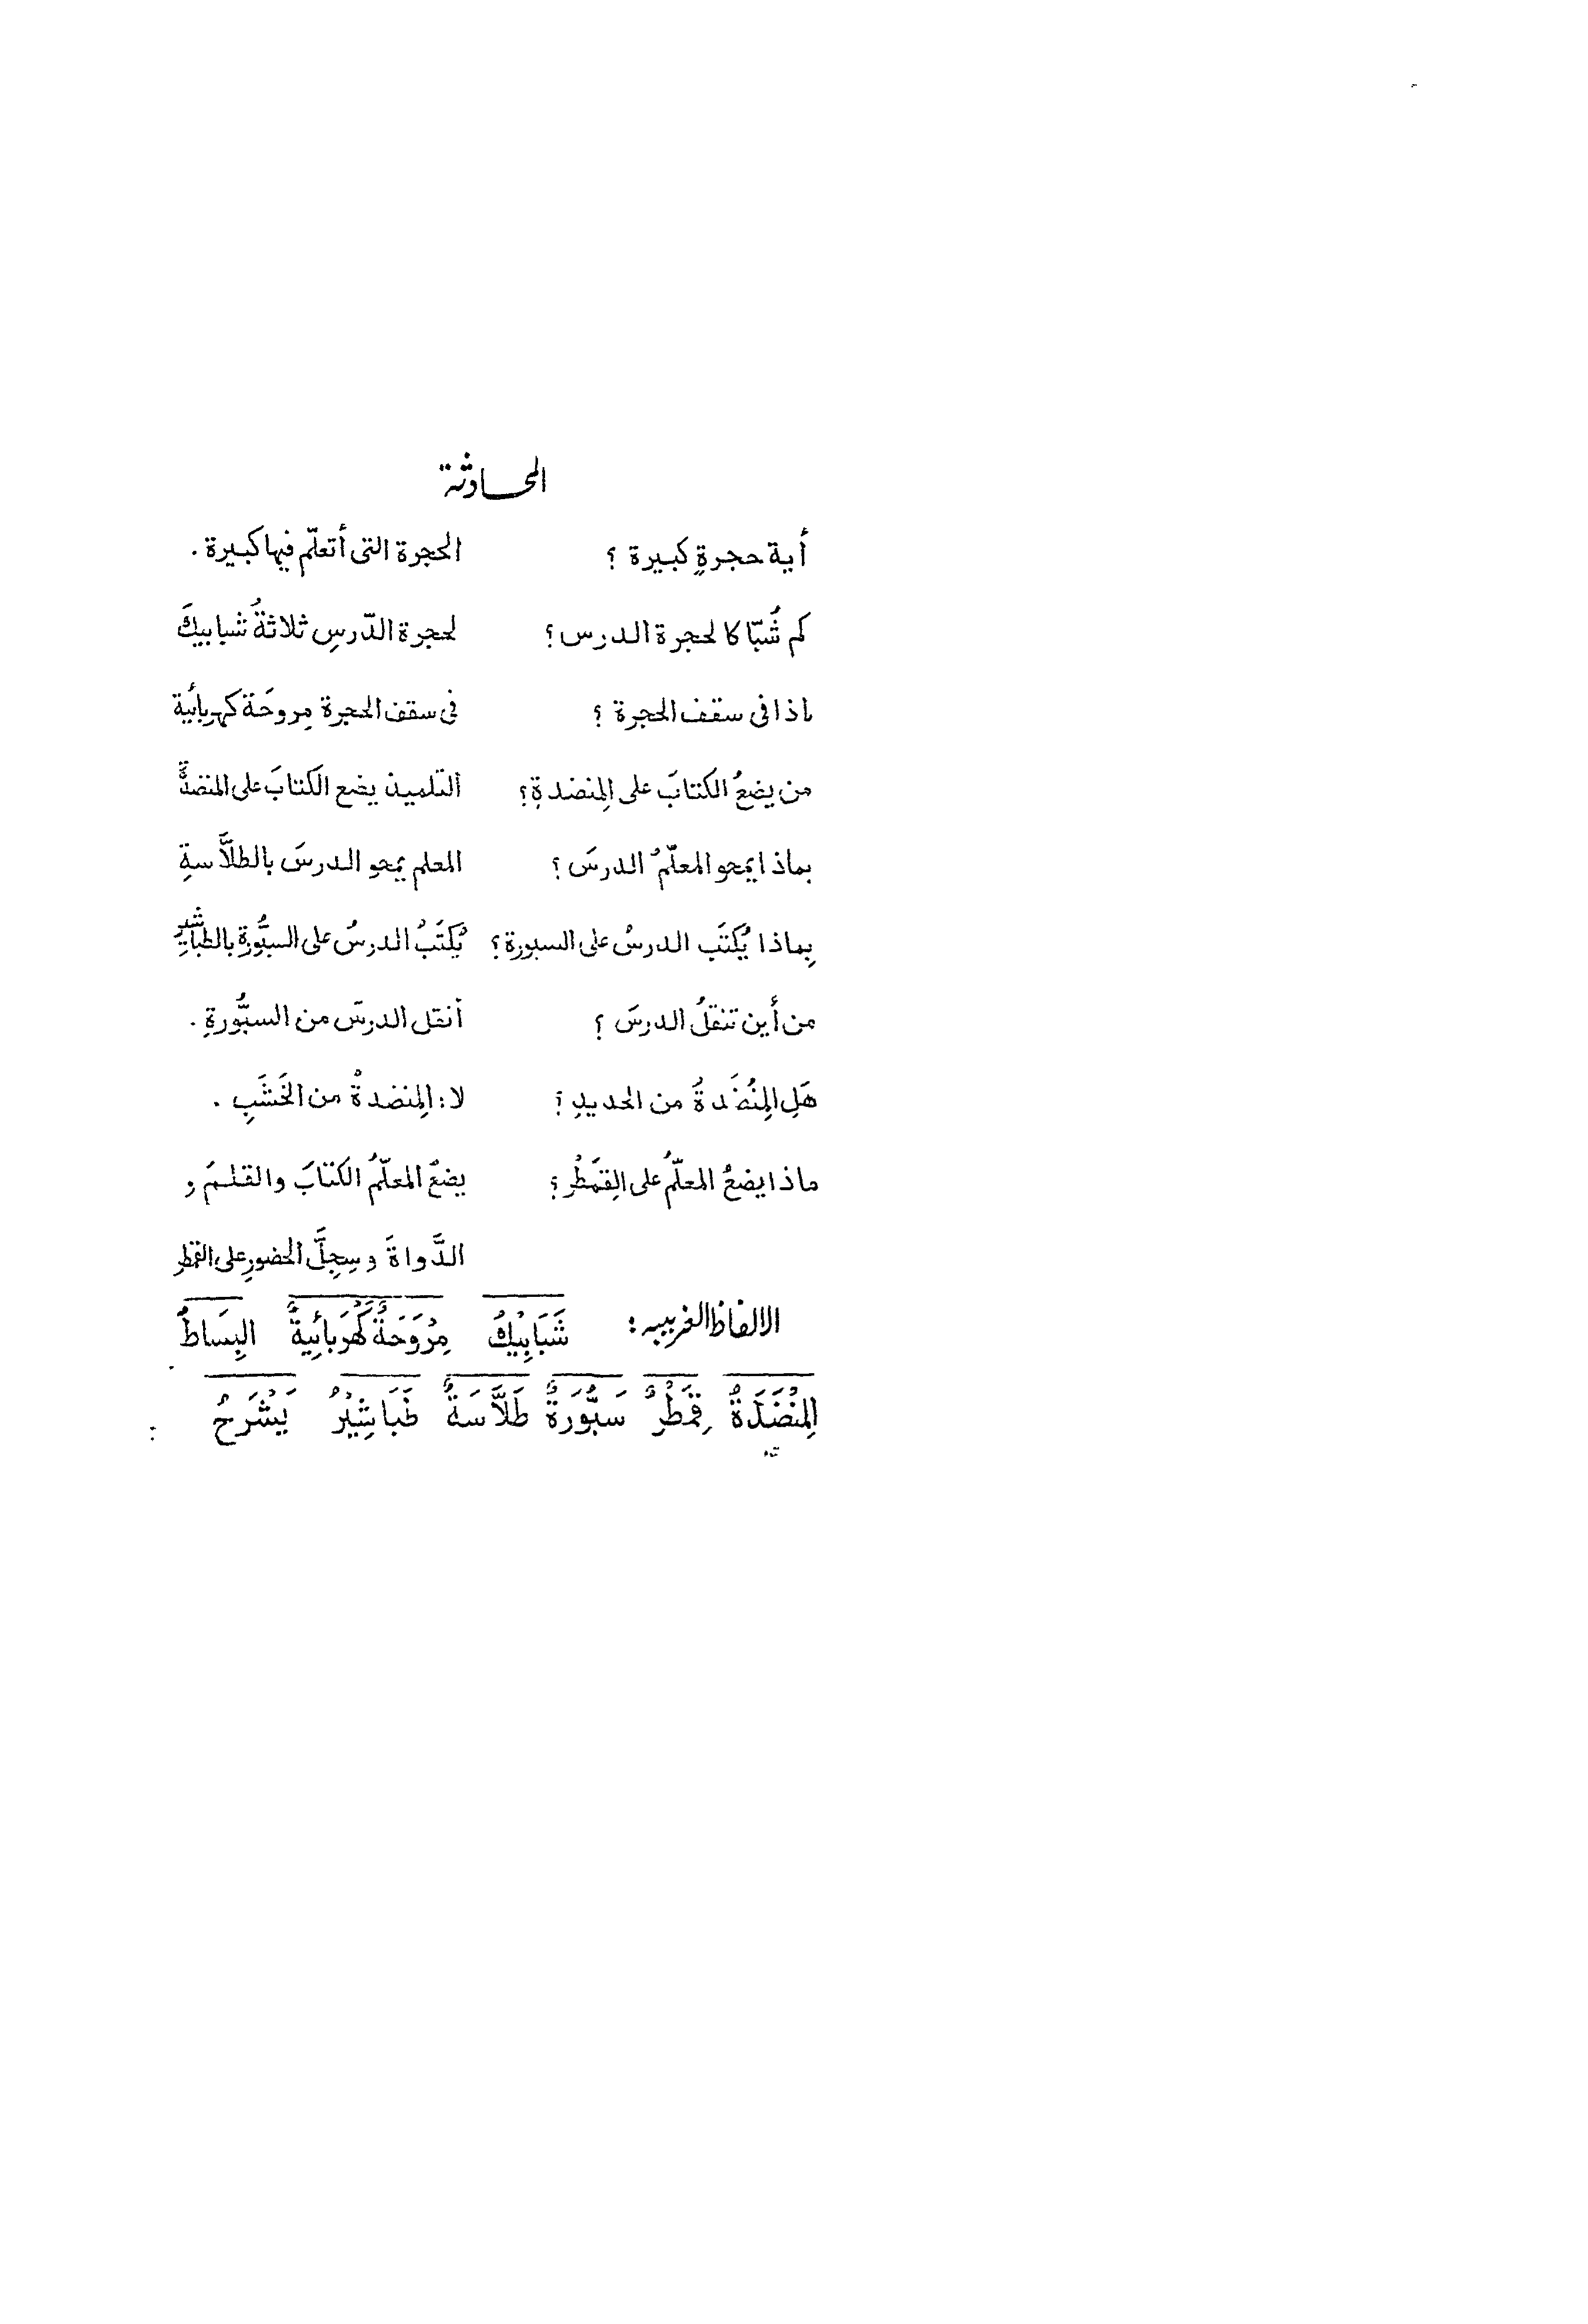 المحادثة
أية حجرةٍ كبيرة ؟ الحجرة التى أتعلّم فيها كبيرة .
كم شُبّاكا لحجرة الدرس ؟ لحجرة الدّرسِ ثلاثةُ شبابيكَ
ماذا فى سقف الحجرة ؟ فى سقف الحجرة مِروحَة كهربائية
من يضعُ الكتابَ على المِنضدةِ ؟ التلميذ يضع الكتابَ على المنضدةِ
بماذا يمحو المعلّمُ الدرسَ ؟ المعلم يمحو الدرسَ بالطلَّاسةِ
بِماذا يُكتَب الدرسُ على السبورة ؟ يُكتَبُ الدرسُ على السبُّورةِ بالطَّباشير
من أَين تنقلُ الدرسَ ؟ أنقل الدرسَ من السبُّورةِ .
هَلِ المِنْضَدةُ من الحديدِ ؟ لا : المِنضدةُ من الخَشَبِ .
ماذا يضعُ المعلّمُ على القِمَطْرِ ؟ يضعُ المعلّمُ الكتابَ والقلمَ و
الدَّواةَ وسِجِلَّ الحضورِ على القمطر
الالفاظ الغريبه : شَبَابِيْكُ مِرْوَحَةٌ كَهْرَبائِيةٌ البِسَاطُ
المِنْضَدَةُ قِمَطْرٌ سَبُّورَةٌ طَلَّاسَةٌ طَبَاشِيْرُ يَشْرَحُ